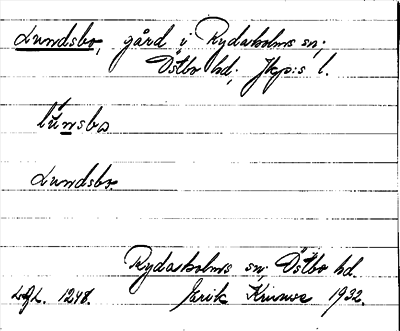 Lundsbo, gård i Rydaholms sn;
Östbo hd; Jkp:s l.
lunsbo
Lundsbo
Rydaholms sn; Östbo hd.
1248. Erik 1932.